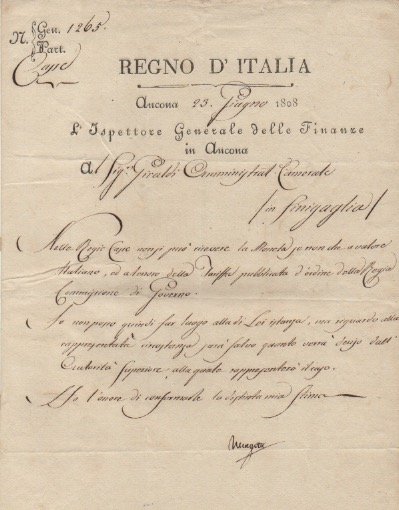 N. Gen. 1265.
Part.
Casse
REGNO D'ITALIA
Ancona 23. Giugno 1808
L'Ispettore Generale delle Finanze
in Ancona
Al Sig. Giraldi Amministrat. Camerale
in Sinigaglia
Nelle Regie Casse non si può ricevere la Moneta se non che a valore
Italiano, ed a tenore della Tariffa pubblicata d'ordine della Regia
Commissione di Governo.
Io non posso quindi far luogo alla di Lei istanza, ma riguardo alla
rappresentata circostanza, sarà salvo quanto verrà deciso dall'
Autorità Superiore, alla quale rappresenterò il caso.
Ho l'onore di confermarle la distinta mia stima